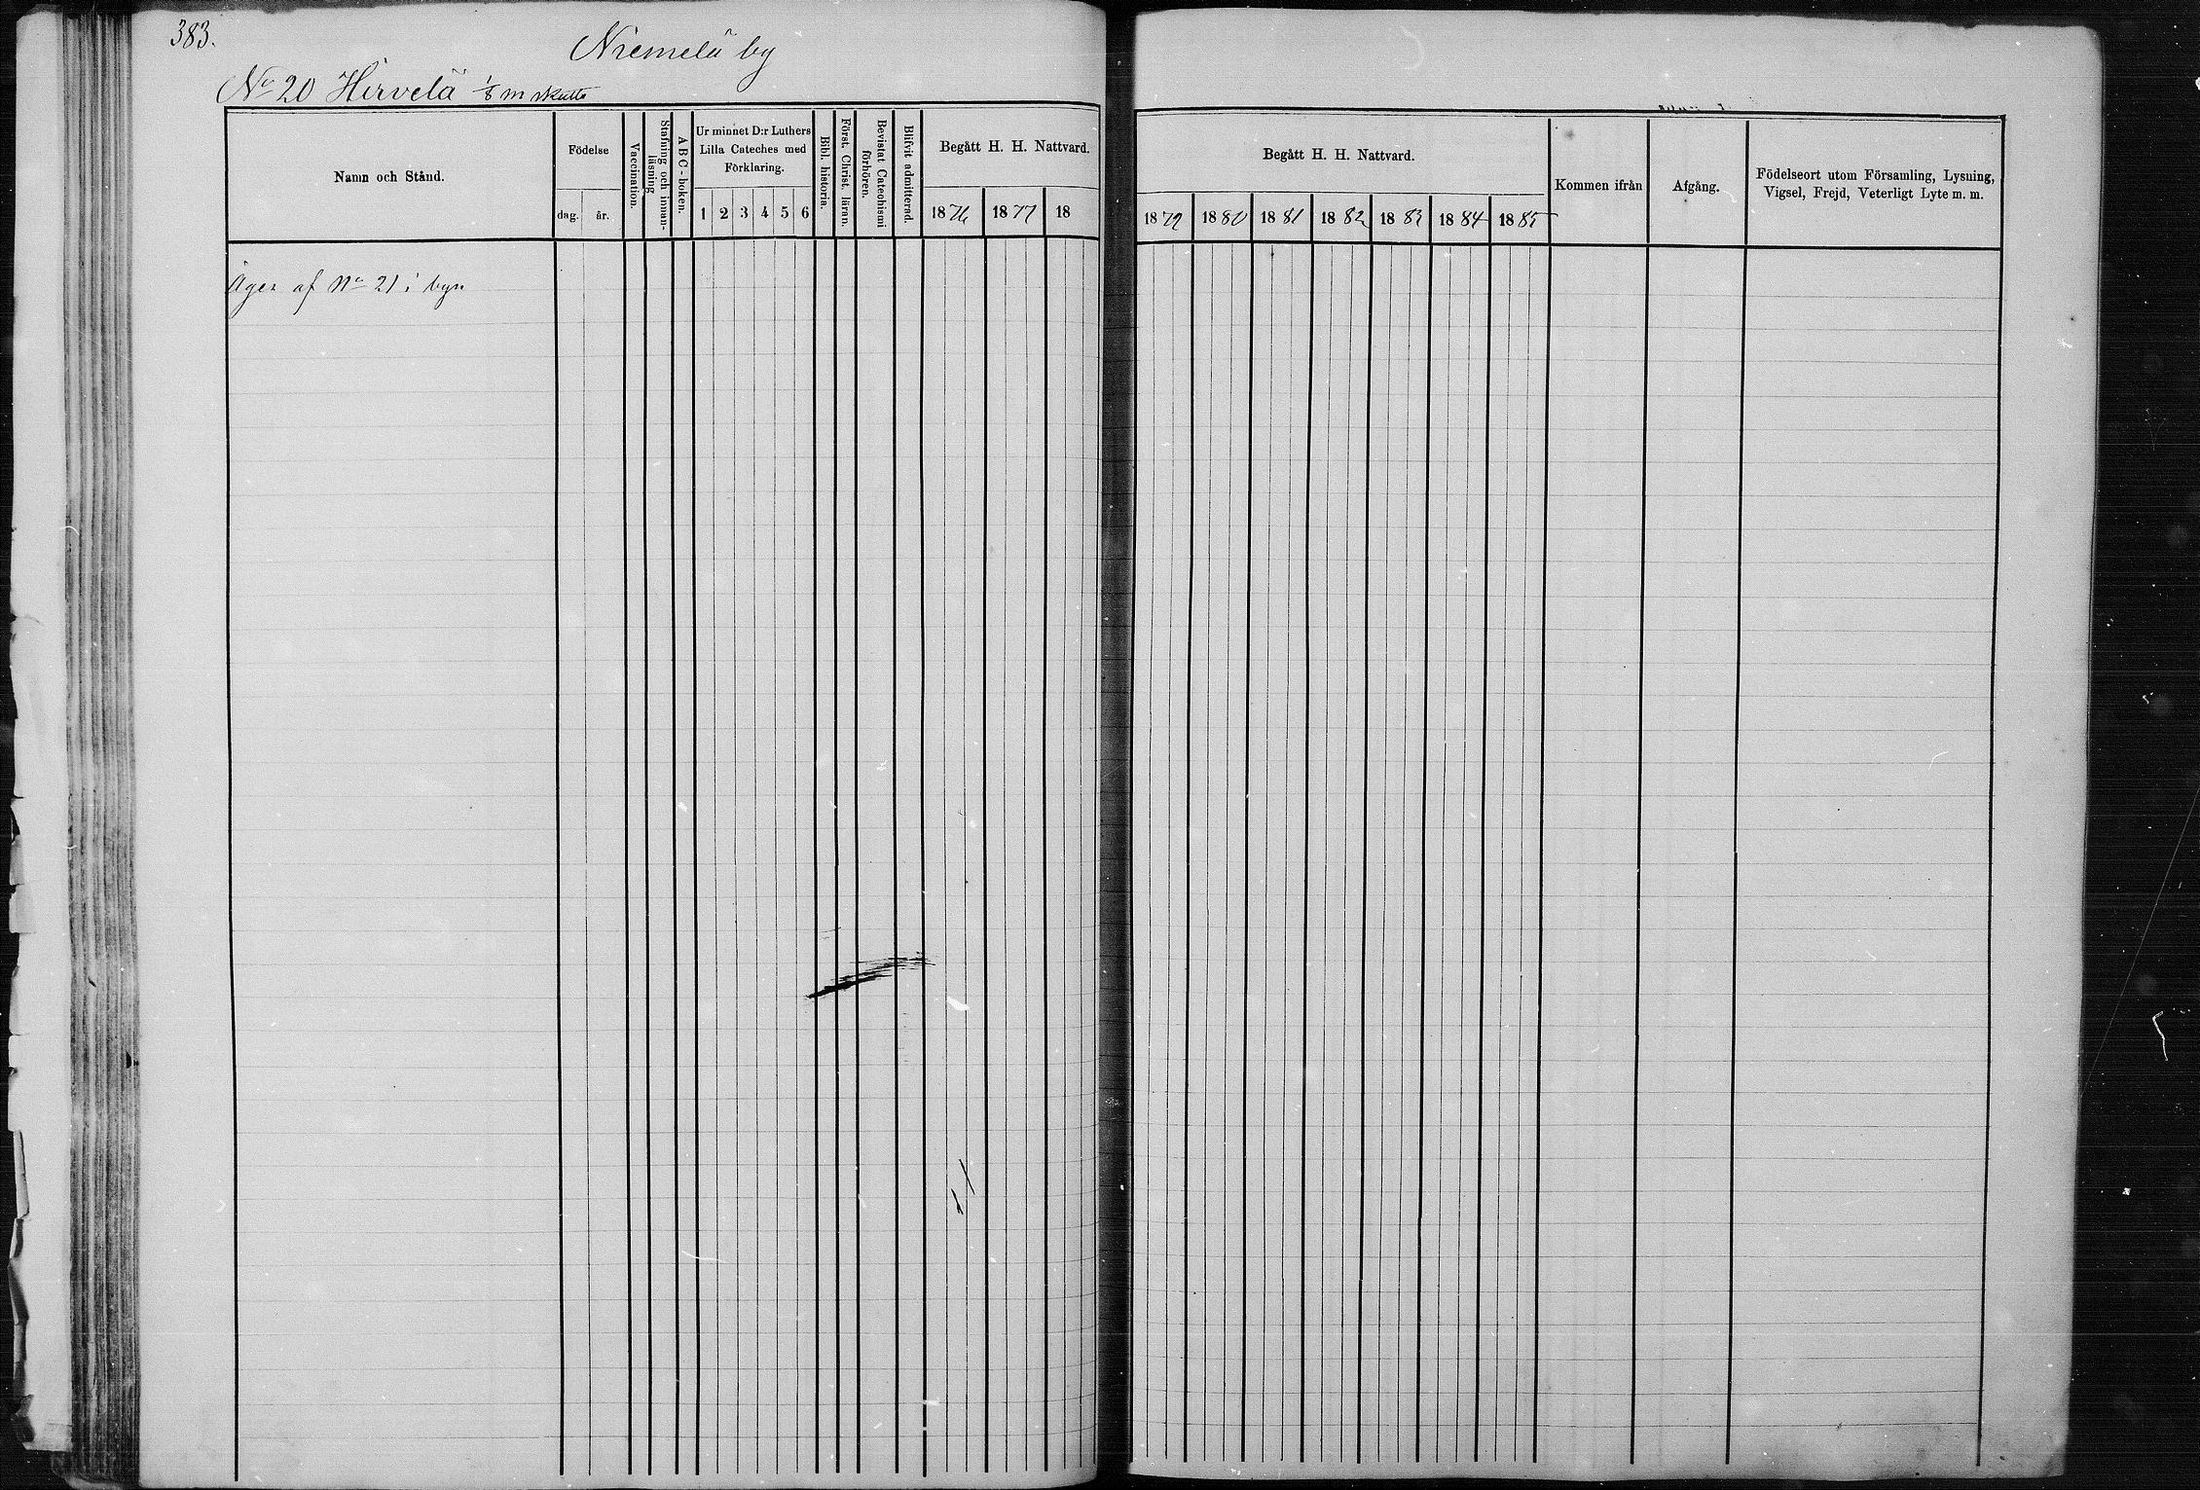 383.
Niemelä by
No 20 Hirvelä 1/8 m skatte
Namn och Stånd.
Födelse
dag. år.
Vaccination.
Stafning och innan-
läsning
A B C - boken.
Ur minnet D:r Luthers
Lilla Cateches med
Förklaring.
1 2 3 4 5 6
Bibl. historia.
Först. Christ. läran.
Bevistat Catechismi
förhören.
Blifvit admitterad.
Begått H. H. Nattvard.
1876 1877 18
Begått H. H. Nattvard.
1879 1880 1881 1882 1883 1884 1885
Kommen ifrån
Afgång.
Födelseort utom Församling, Lysning,
Vigsel, Frejd, Veterligt Lyte m. m.
Äges af No 21 i byn